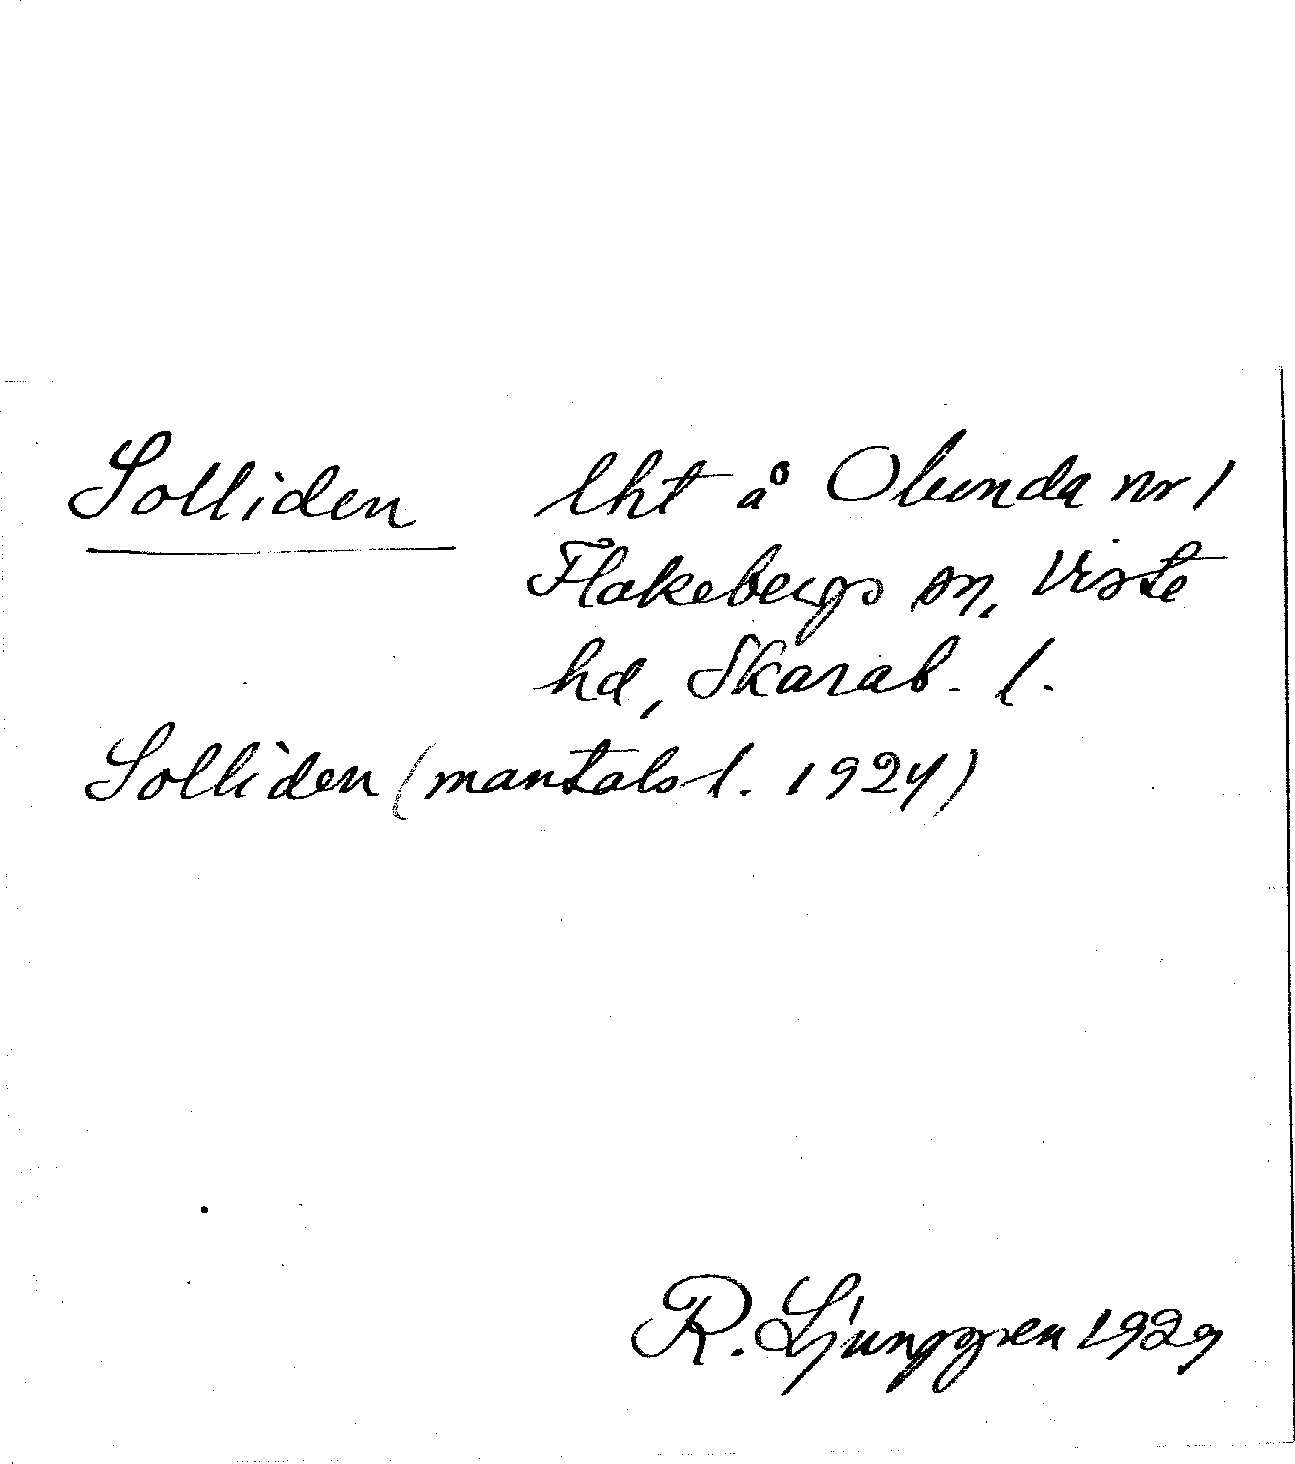 Solliden lht å Olunda nr 1
Flakebergs sn, Viste
hd, Skarab. l.
Solliden (mantals-l. 1924)
R. Ljunggren 1929